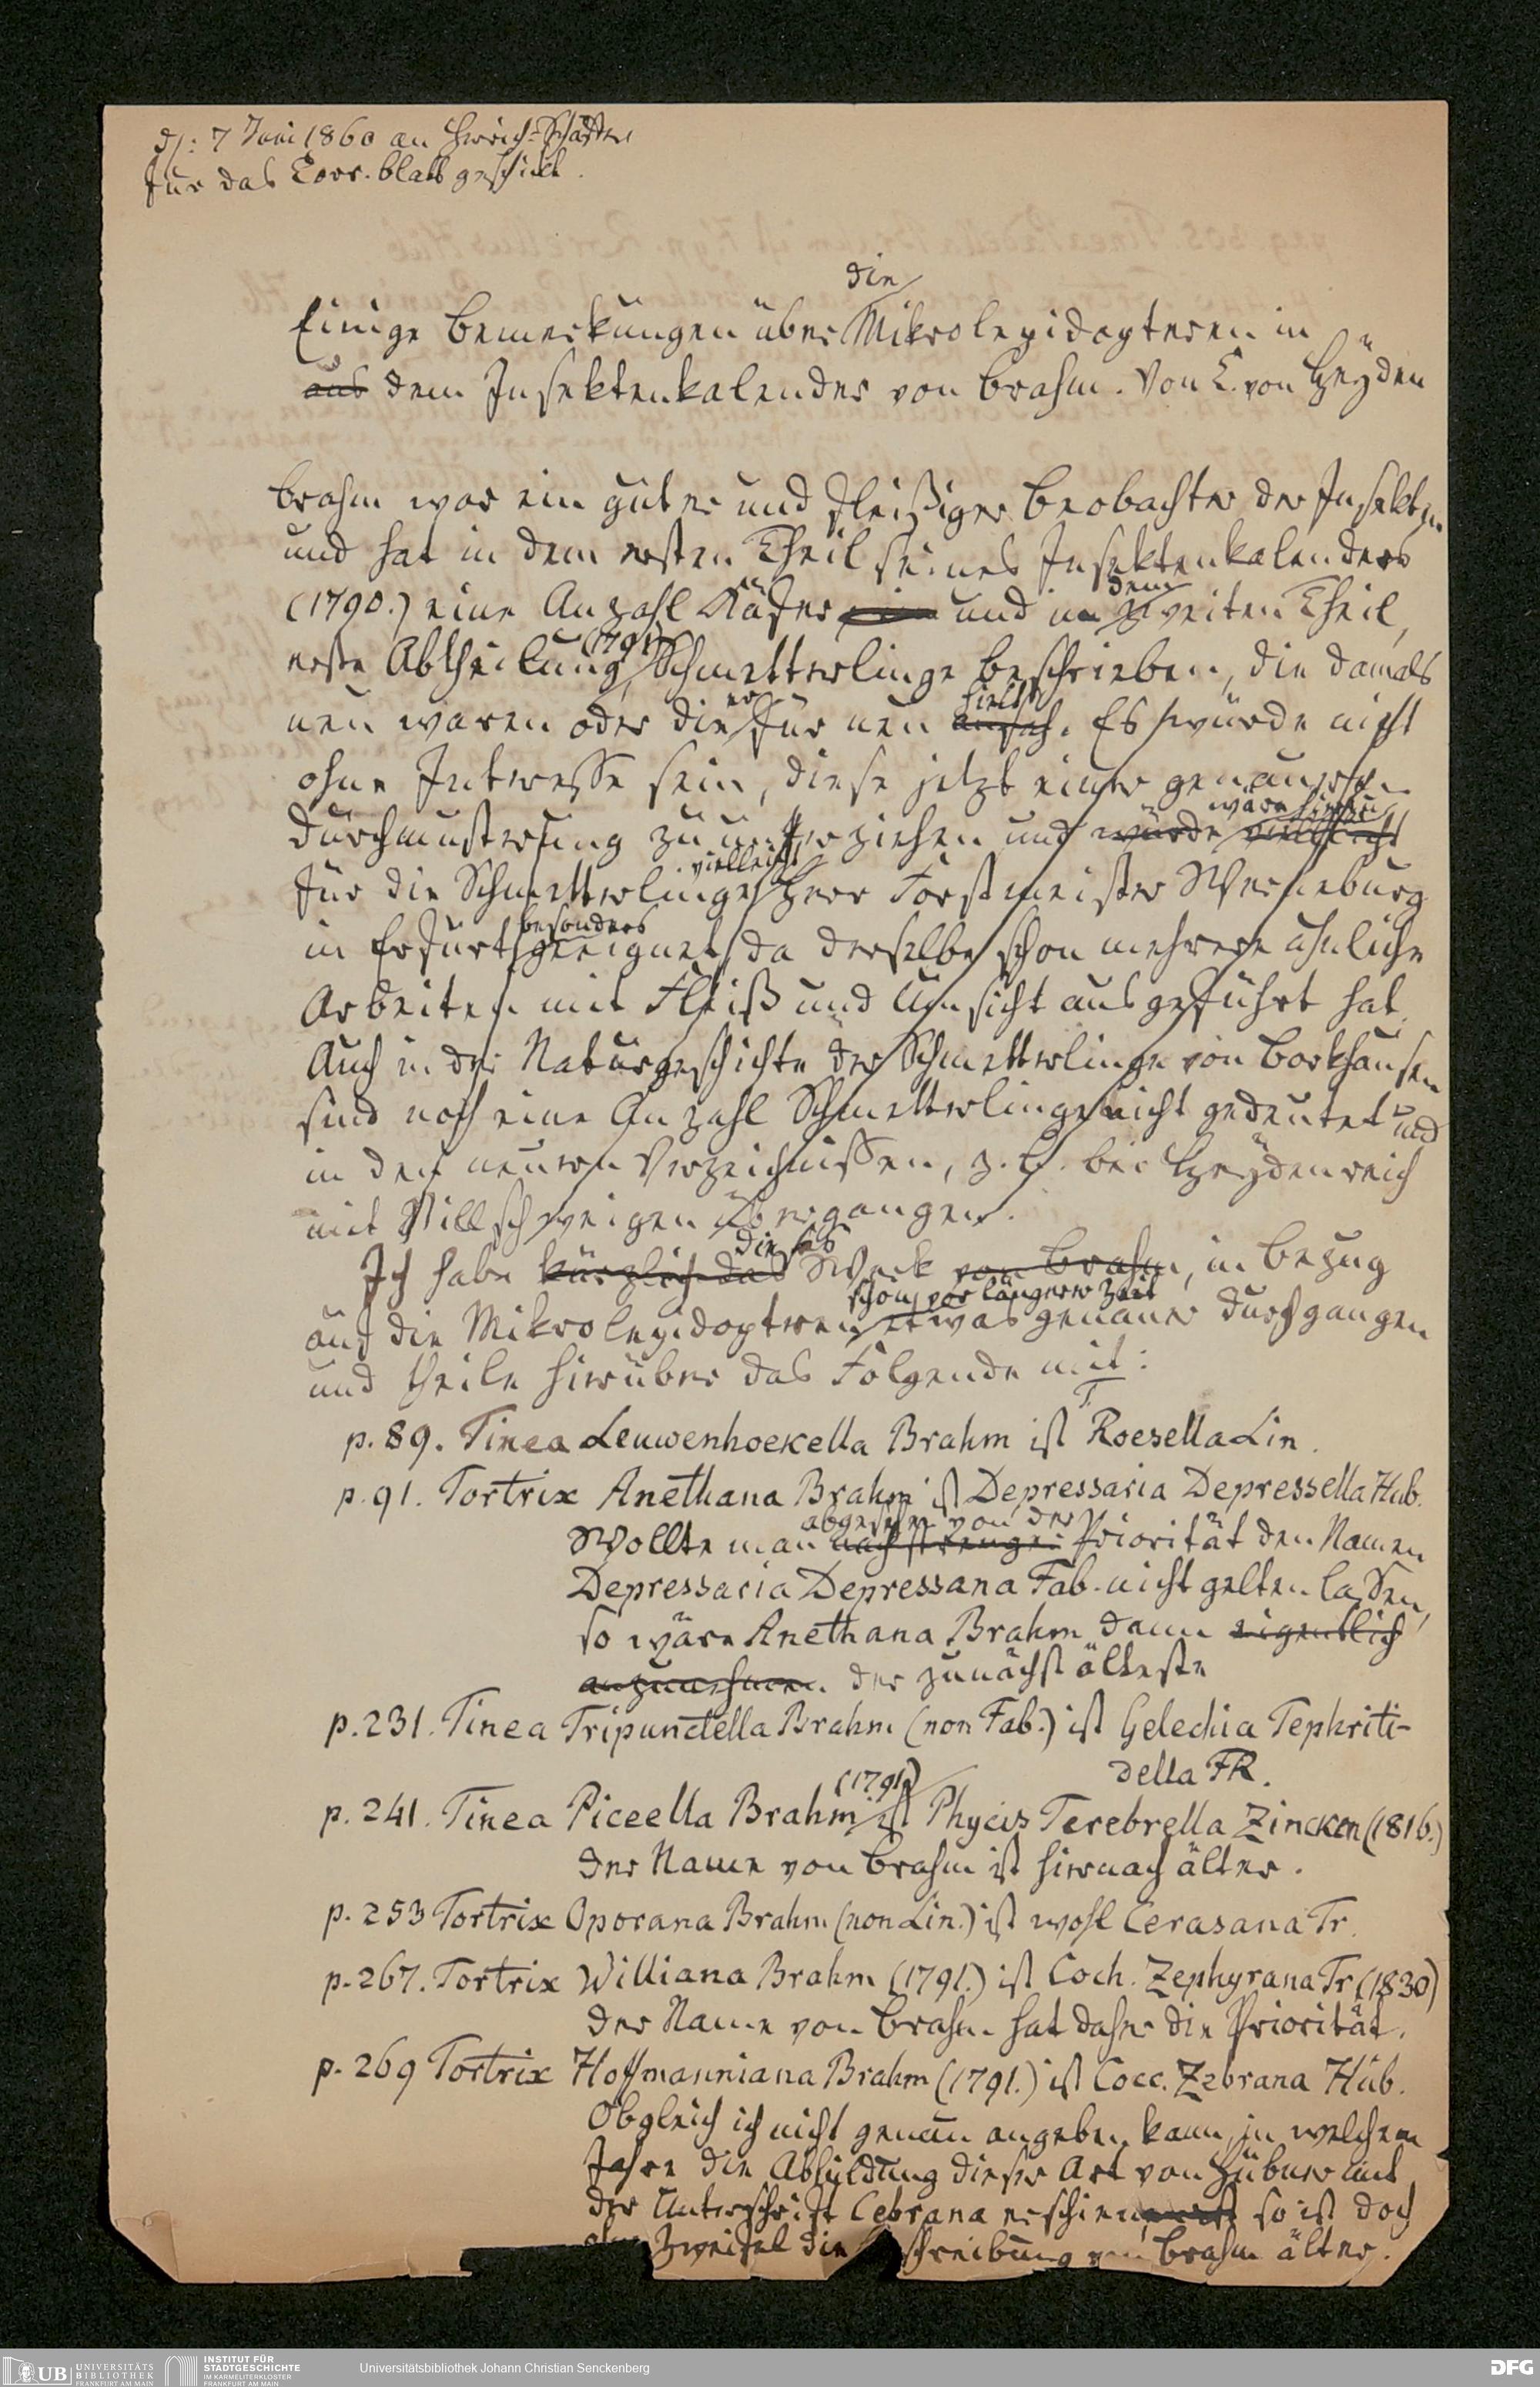 d: 7 Juni 1860 an Herrich-Schäffer
für das Corr. blatt geschickt.
die
Einige Bemerkungen über Mikrolepidopteren in
aus dem Insektenkalender von Brahm. Von C. von Heyden
Brahm war ein guter und fleißiger Beobachter der Insekten
und hat in dem ersten Theil seines Insektenkalenders
dem
(1790.) eine Anzahl Käfer und in zweiten Theil,
(1791)
erste Abtheilung, Schmetterlinge beschrieben, die damals
er hielt
neu waren oder die für neu ansah. Es würde nicht
ohne Interesse sein, diese jetzt einer genaueren
wäre hierzu
Durchmusterung zu unterziehen und würde vielleicht
vielleicht
für die Schmetterlinge Herr Forstmeister Werneburg
besonders
in Erfurt geeignet, da derselbe schon mehrere ähnliche
Arbeiten mit Fleiß und Umsicht ausgeführt hat.
Auch in der Naturgeschichte der Schmetterlinge von Borkhausen
sind noch eine Anzahl Schmetterlinge nicht gedeutet und
in den neuern Verzeichnissen, z. B. bei Heydenreich
mit Stillschweigen übergangen.
dieses
Ich habe kürzlich das Werk von Brahm, in Bezug
schon vor längerer Zeit
auf die Mikrolepidopteren etwas genauer durchgangen
und theile hierüber das Folgende mit:
T
p. 89. Tinea Leuwenhoekella Brahm ist Roesella Lin.
p. 91. Tortrix Anethana Brahm ist Depressaria Depressella Hub.
abgesehen von der
Wollte man nach strenger Priorität den Namen
Depressaria Depressana Fab. nicht gelten lassen,
so wäre Anethana Brahm dann eigentlich
anzunehmen der zunächst älteste
p. 231. Tinea Tripunctella Brahm (non Fab.) ist Gelechia Tephriti-
della FR.
(1791.)
p. 241. Tinea Piceella Brahm ist Phycis Terebrella Zincken (1816.)
der Name von Brahm ist hiernach älter.
p. 253 Tortrix Oporana Brahm (non Lin.) ist wohl Cerasana Tr.
p. 267. Tortrix Williana Brahm (1791.) ist Coch. Zephyrana Tr (1830)
der Name von Brahm hat daher die Priorität.
p. 269 Tortrix Hoffmanniana Brahm (1791.) ist Cocc. Zebrana Hüb.
Obgleich ich nicht genau angeben kann, in welchem
Jahre die Abbildung dieser Art von Hübner mit
der Unterschrift Cebrana erschien, so ist doch
ohne Zweifel die Beschreibung von Brahm älter.
UB UNIVERSITÄTS
BIBLIOTHEK
FRANKFURT AM MAIN
INSTITUT FÜR
STADTGESCHICHTE
IM KARMELITERKLOSTER
FRANKFURT AM MAIN
Universitätsbibliothek Johann Christian Senckenberg
DFG